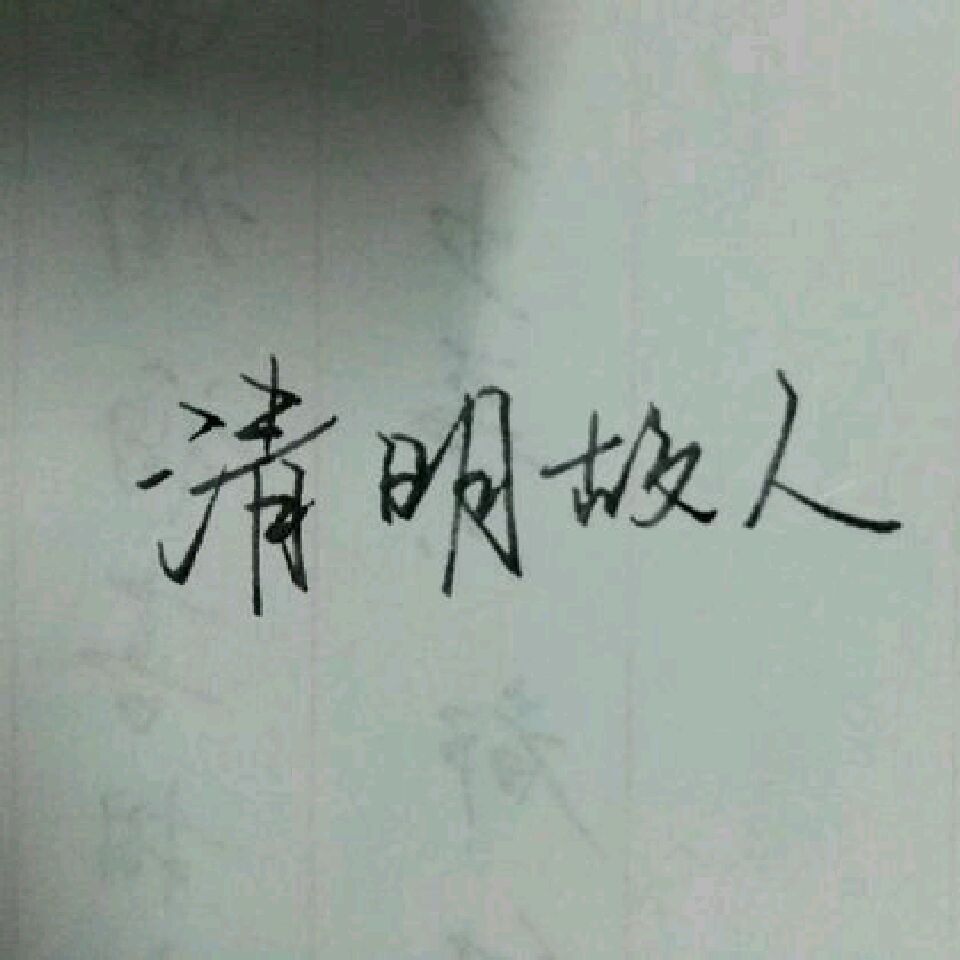 清明故人